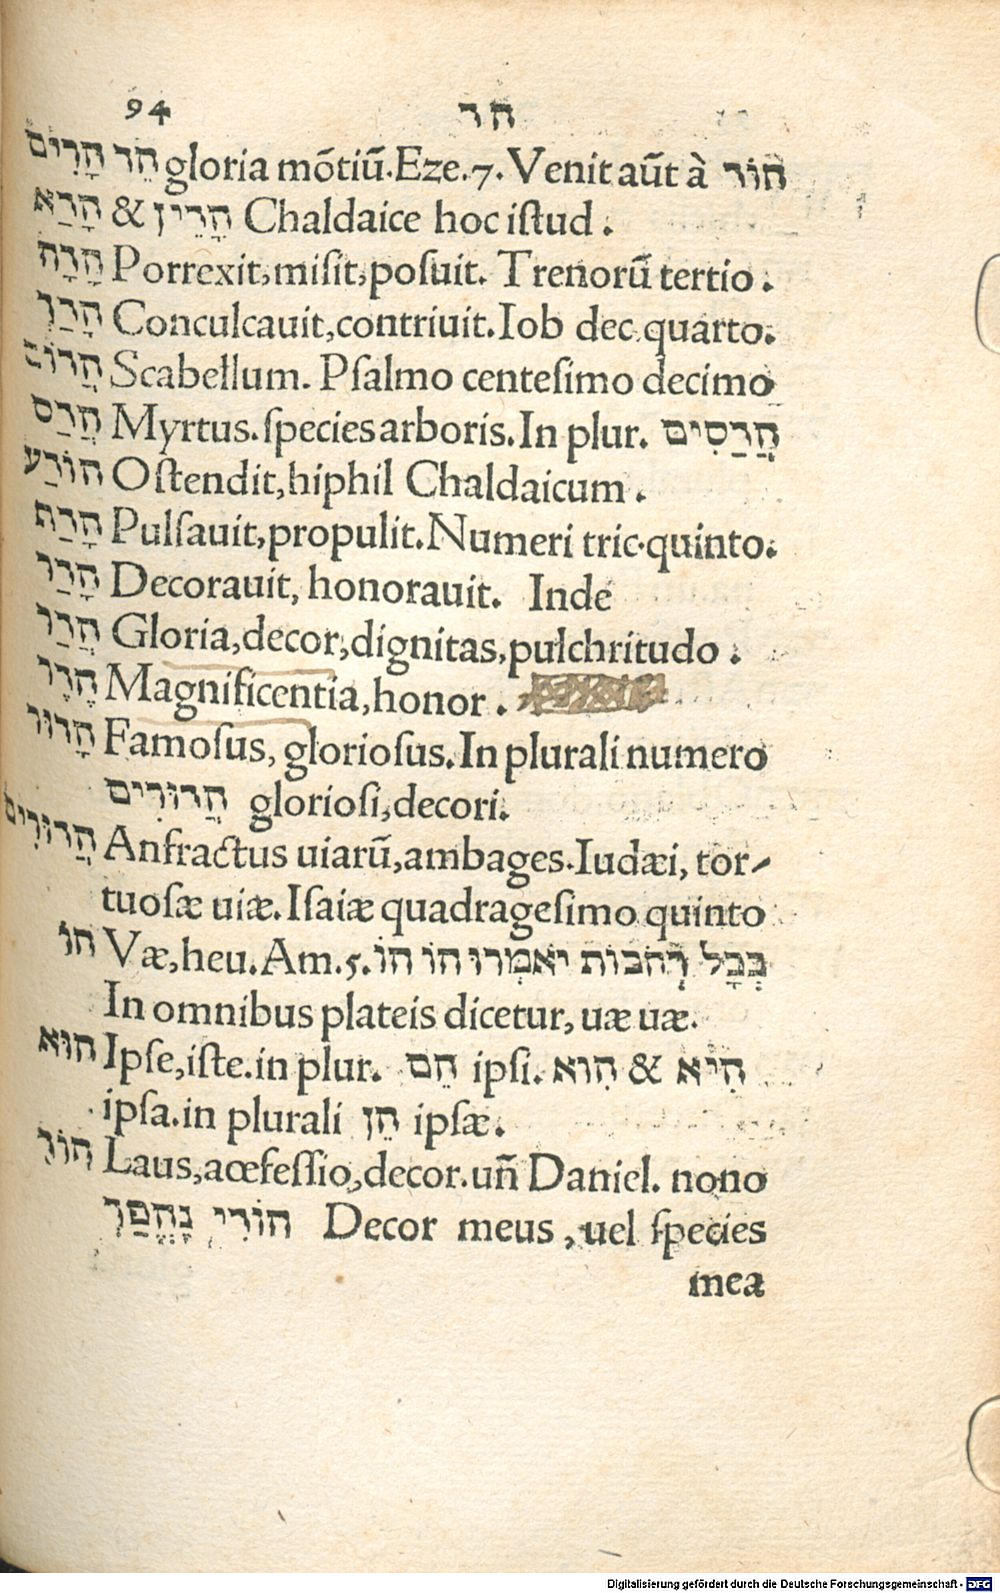 94 הד
הֵד הָרִים gloria mõtiũ. Eze. 7. Venit aũt à הוֹד
הָדַא & הָדֵין Chaldaice hoc iſtud.
הָדָה Porrexit, miſit, poſuit. Trenorũ tertio.
הָדַךְ Conculcauit, contriuit. Iob dec. quarto.
Scabellum. Pſalmo centeſimo decimo
הֲדַס Myrtus. ſpecies arboris. In plur. הֲדַסִים
הוֹדַע Oſtendit, hiphil Chaldaicum.
הָדַף Pulſauit, propulit. Numeri tric. quinto.
הָדַר Decorauit, honorauit. Inde
הֲדַר Gloria, decor, dignitas, pulchritudo.
הֶדֶר Magnificentia, honor.
הָדוּר Famoſus, glorioſus. In plurali numero
הֲדוּרִים glorioſi, decori.
הֲדוּרִים Anfractus uiarũ, ambages. Iudæi, tor-
tuoſæ uiæ. Iſaiæ quadrageſimo quinto
הוֹ Væ, heu. Am. 5. בְּכָל רְחֹבוֹת יֹאמְרוּ הוֹ הוֹ
In omnibus plateis dicetur, uæ uæ.
הוּא Ipſe, iſte. in plur. הֵם ipſi. הִוא & הִיא
ipſa. in plurali הֵן ipſæ.
הוֹד Laus, acõfeſſio, decor. uñ Daniel. nono
הוֹדִי נֶהֱפַּךְ Decor meus, uel ſpecies
mea
Digitalisierung gefördert durch die Deutsche Forschungsgemeinschaft - DFG